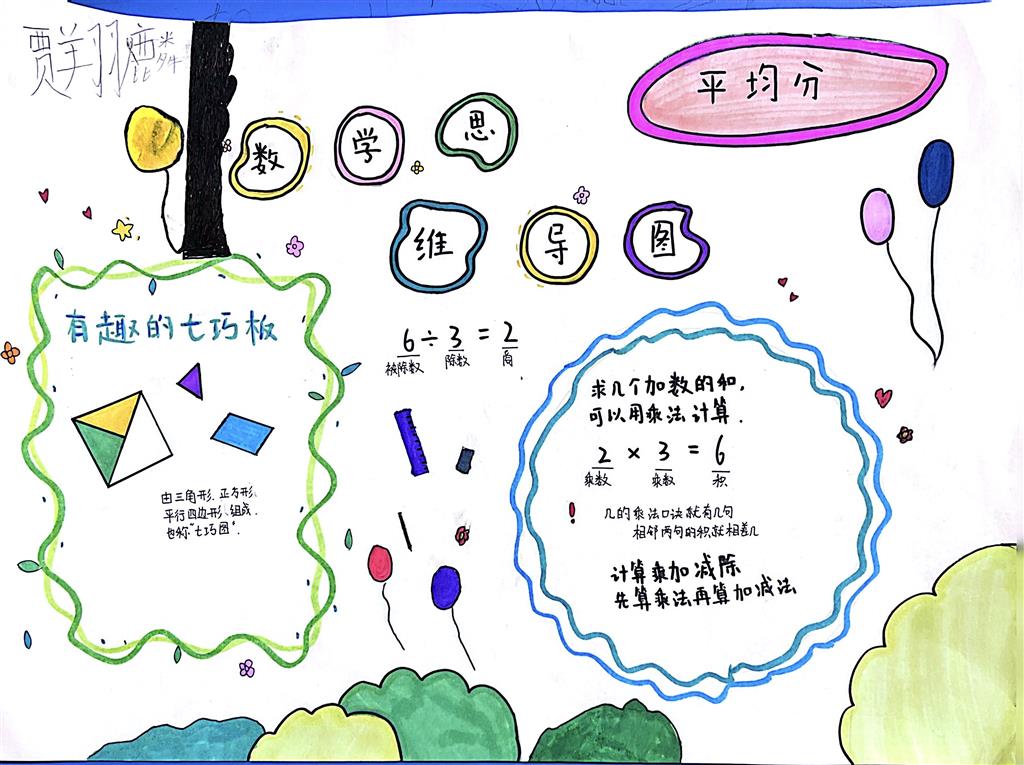 平均分
数学思
维导图
有趣的七巧板
由三角形、正方形、
平行四边形、组成.
也称“七巧图”.
6÷3=2
被除数 除数 商
求几个加数的和,
可以用乘法计算.
2×3=6
乘数 乘数 积
! 几的乘法口诀就有几句
相邻两句的积就相差几
计算乘加减除
先算乘法再算加减法